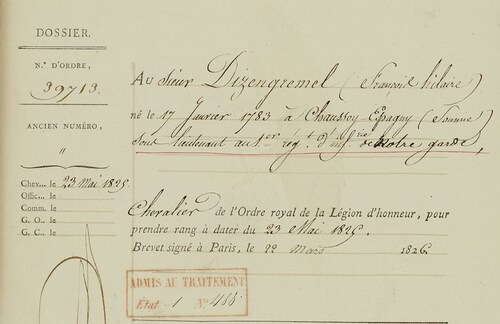 DOSSIER.
N.º D'ORDRE,
39713.
ANCIEN NUMÉRO,
"
Chev... le 23 Mai 1825
Offic... le
Comm. le
G. O... le
G. C... le
Au Sieur Dizengremel (François hilaire)
né le 17 Janvier 1783 à Chaussoy Epagny (Somme)
Sous lieutenant au 1er régt. d'infrie de Notre garde,
Chevalier de l'Ordre royal de la Légion d'honneur, pour
prendre rang à dater du 23 Mai 1825.
Brevet signé à Paris, le 22 Mars 1826
ADMIS AU TRAITEMENT
État 1 Nº 455